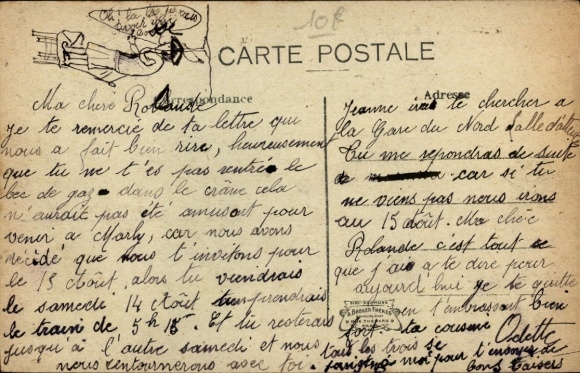 10F
Oh! la la je vais
CARTE POSTALE
Correspondance
Adresse
Ma chère Rolande
Je te remercie de ta lettre qui
nous a fait bien rire, heureusement
que tu ne t'es pas rentrée le
bec de gaz dans le crâne cela
n'aurait pas été amusant pour
venir à Marly, car nous avons
décidé que nous t'invitons pour
le 15 Août, alors tu viendrais
le samedi 14 Août tu prendrais
le train de 5h 15 Et tu resterais
jusqu'à l'autre samedi et nous
nous retournerons avec toi.
Jeanne irai te chercher a
la Gare du Nord Salle d'attente
Tu me repondras de suite
car si tu
ne viens pas nous irons
au 15 Août. Ma chère
Rolande c'est tout ce
que j'ai a te dire pour
aujourd'hui je te quitte
en t'embrassant bien
fort ta cousine Odette
tous les trois se
joignent à moi pour t'envoyer de
bons baisers